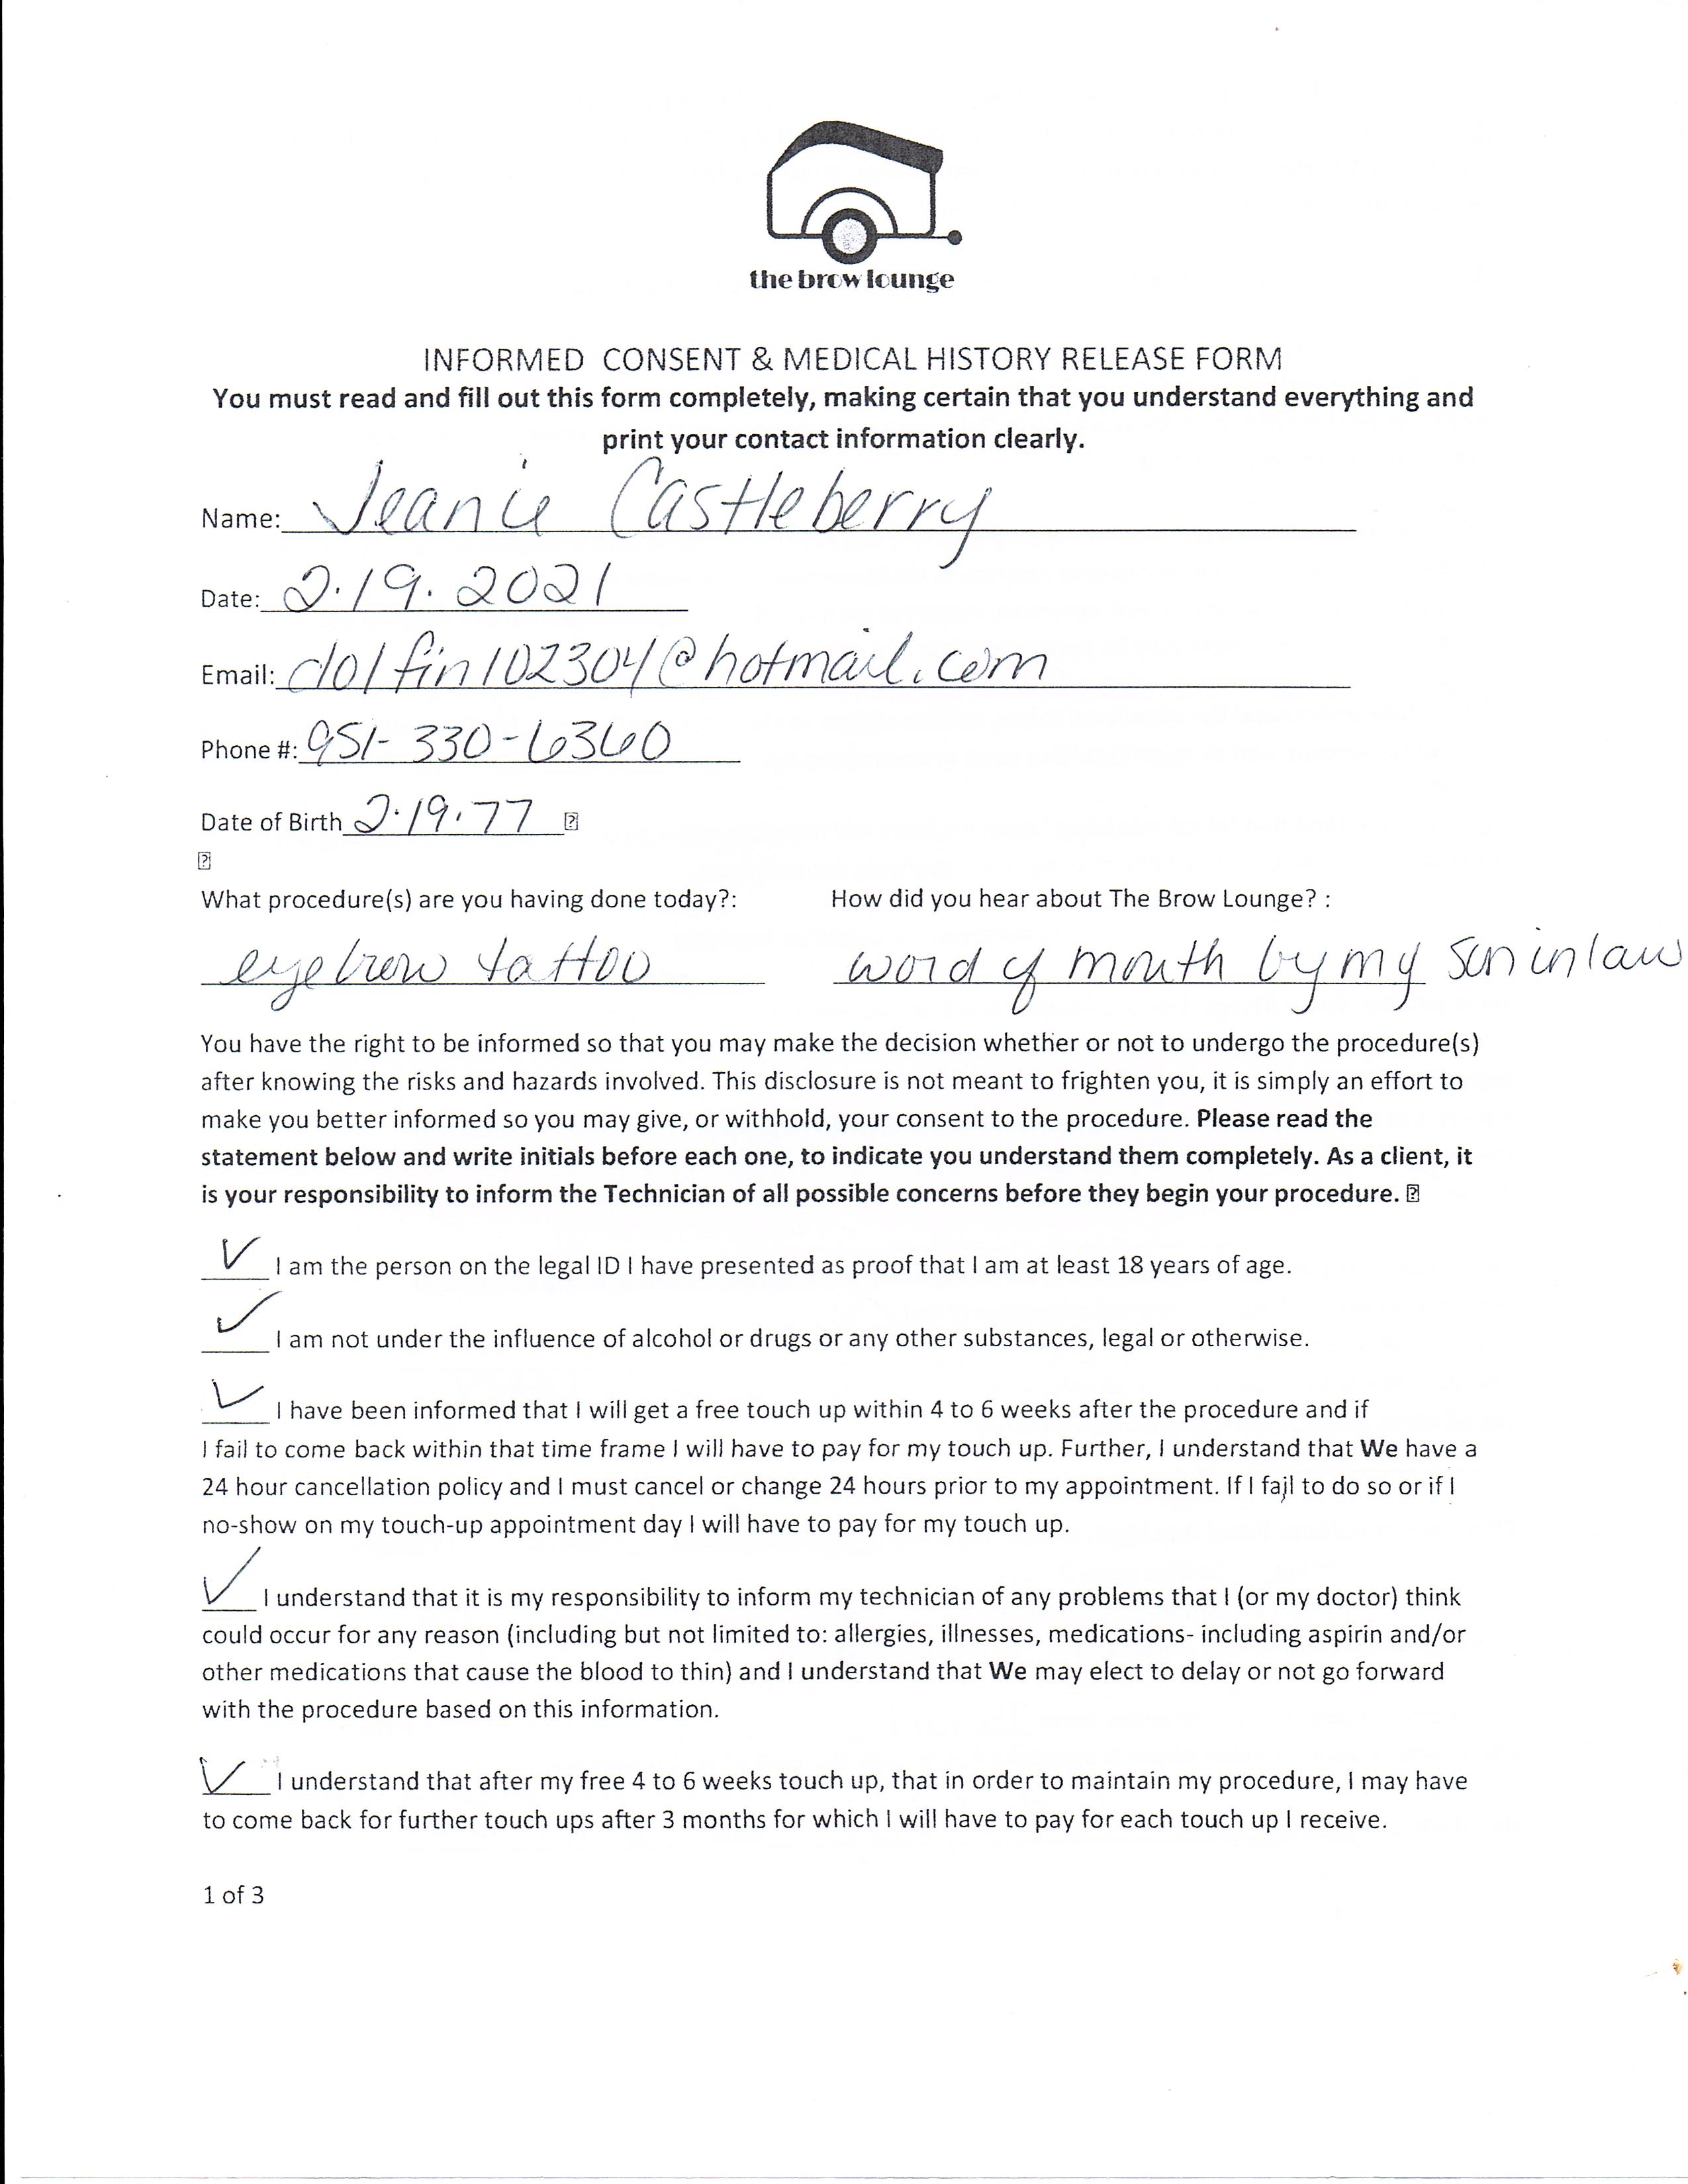 the brow lounge
INFORMED CONSENT & MEDICAL HISTORY RELEASE FORM
You must read and fill out this form completely, making certain that you understand everything and
print your contact information clearly.
Name: Jeanie Castleberry
Date: 2.19.2021
Email: dolfin102304@hotmail.com
Phone #: 951-330-6360
Date of Birth 2.19.77
What procedure(s) are you having done today?: How did you hear about The Brow Lounge? :
eyebrow tattoo word of mouth by my son in law
You have the right to be informed so that you may make the decision whether or not to undergo the procedure(s)
after knowing the risks and hazards involved. This disclosure is not meant to frighten you, it is simply an effort to
make you better informed so you may give, or withhold, your consent to the procedure. Please read the
statement below and write initials before each one, to indicate you understand them completely. As a client, it
is your responsibility to inform the Technician of all possible concerns before they begin your procedure.
✓ I am the person on the legal ID I have presented as proof that I am at least 18 years of age.
✓ I am not under the influence of alcohol or drugs or any other substances, legal or otherwise.
✓ I have been informed that I will get a free touch up within 4 to 6 weeks after the procedure and if
I fail to come back within that time frame I will have to pay for my touch up. Further, I understand that We have a
24 hour cancellation policy and I must cancel or change 24 hours prior to my appointment. If I fail to do so or if I
no-show on my touch-up appointment day I will have to pay for my touch up.
✓ I understand that it is my responsibility to inform my technician of any problems that I (or my doctor) think
could occur for any reason (including but not limited to: allergies, illnesses, medications- including aspirin and/or
other medications that cause the blood to thin) and I understand that We may elect to delay or not go forward
with the procedure based on this information.
✓ I understand that after my free 4 to 6 weeks touch up, that in order to maintain my procedure, I may have
to come back for further touch ups after 3 months for which I will have to pay for each touch up I receive.
1 of 3